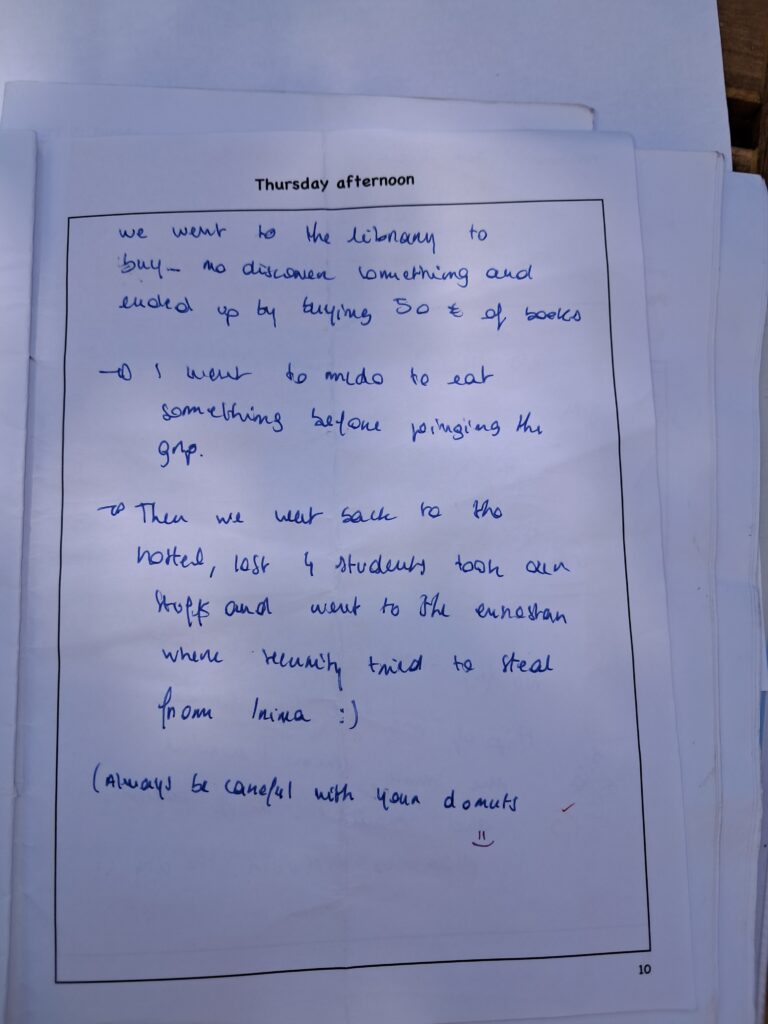 Thursday afternoon
we went to the library to
buy- no discover something and
ended up by buying 50 £ of books
→ I went to mcdo to eat
something before joinging the
grp.
→ Then we went back to the
hostel, last 4 students took our
stuffs and went to the eurostar
where security tried to steal
from Irina :)
(Always be careful with your donuts
10